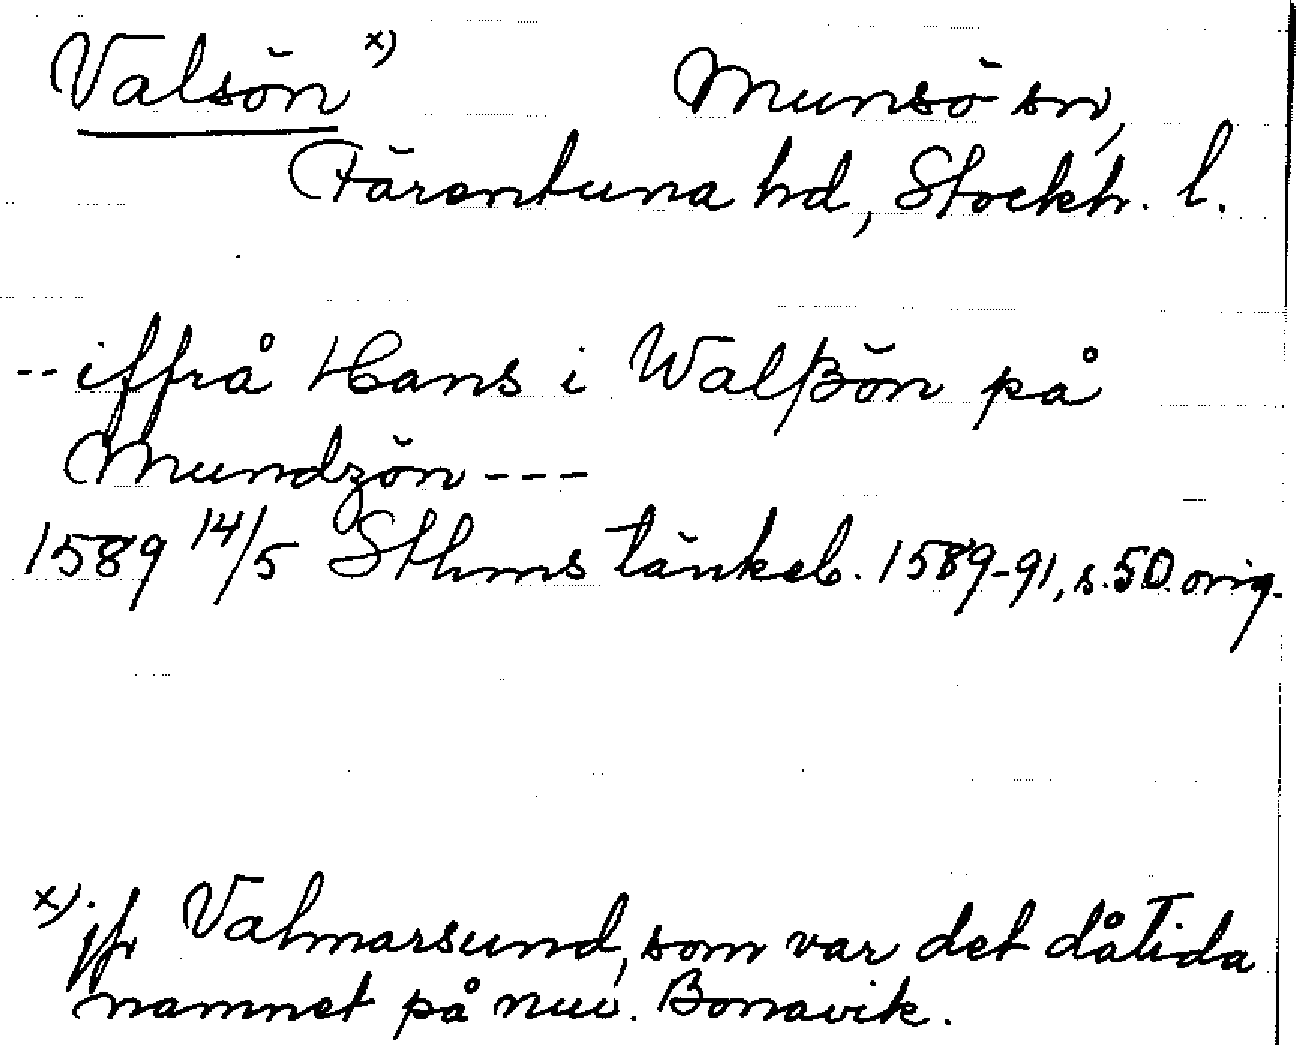 Valsön x)
Munsö sn,
Färentuna hd, Stockh. l.
-- iffrå Hans i Walßön på
Mundzön ---
1589 14/5 Sthms tänkeb. 1589-91, s. 50 orig.
x). jfr Valmarsund, som var det dåtida
namnet på nuv. Bonavik.